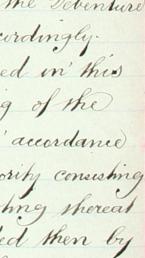 the Debenture
cordingly.
ed in this
g of the
accordance
ority consisting
ting thereat
ed then by